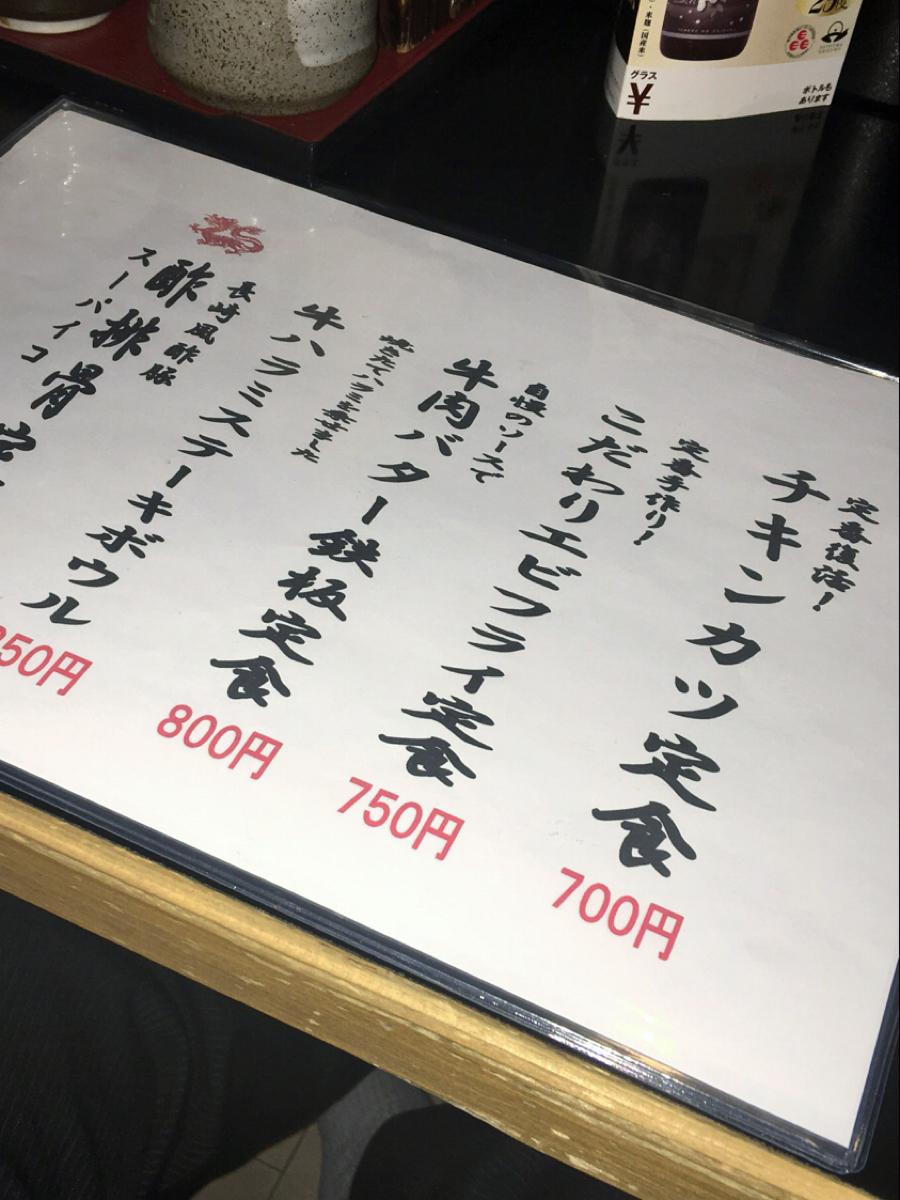 定番復活！
チキンカツ定食
700円
定番手作り！
こだわりエビフライ定食
750円
自慢のソースで
牛肉バター鉄板定食
800円
焼きたてハラミを乗せました
牛ハラミステーキボウル
50円
長崎風酢豚
酢排骨定
スーパイコ
グラス
¥
ボトルも
あります